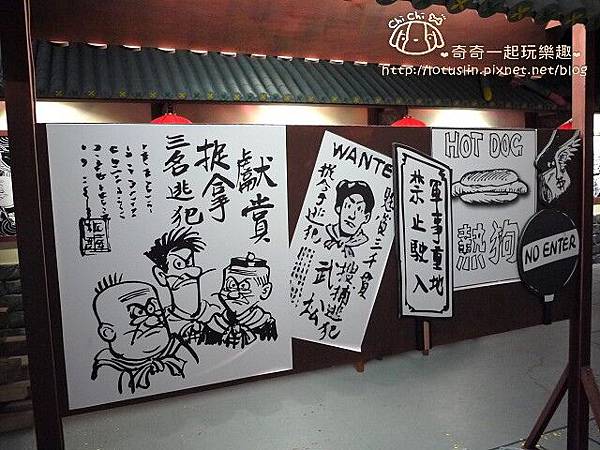 Chi Chi
奇奇一起玩樂趣
http://lotuslin.pixnet.net/blog
獻賞
捉拿
三名逃犯
WANTE
懸賞三千貫
搜捕逃犯
武松
捉拿逃犯
軍事重地
禁止駛入
HOT DOG
熱狗
NO ENTER